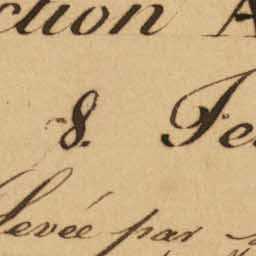 ction A
8. Fe
Levée par